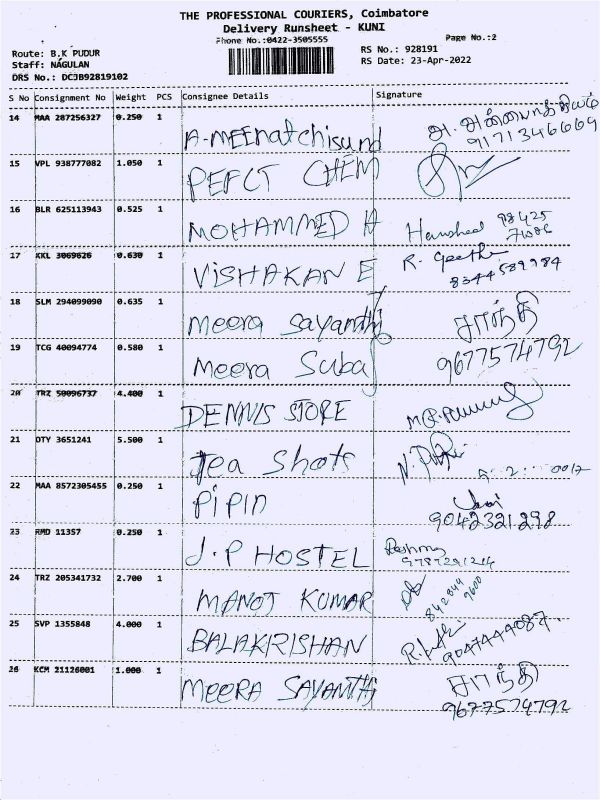 THE PROFESSIONAL COURIERS, Coimbatore
Delivery Runsheet - KUNI
Phone No.:0422-3505555
Page No.:2
Route: B.K PUDUR
Staff: NAGULAN
DRS No.: DCJB92819102
RS No.: 928191
RS Date: 23-Apr-2022
S No Consignment No Weight PCS Consignee Details Signature
14 MAA 287256327 0.250 1 A-MEENatchisund அ. 9171346669
15 VPL 938777082 1.050 1 PEFCT CHEM
16 BLR 625113943 0.525 1 MOHAMMED H 98425
17 KKL 3069626 0.630 1 VISHAKAN E R. Geetha 8344589984
18 SLM 294099090 0.635 1 Meera Sayanthi சாந்தி
19 TCG 40094774 0.580 1 Meera Suba 9677574792
20 TRZ 50096737 4.400 1 DENNIS STORE
21 OTY 3651241 5.500 1 Tea Shots
22 MAA 8572305455 0.250 1 PiPin 9042321298
23 RMD 11357 0.250 1 J.P HOSTEL 9787291214
24 TRZ 205341732 2.700 1 MANOJ KUMAR 9600
25 SVP 1355848 4.000 1 BALAKRISHAN 9047444087
26 KCM 21126001 1.000 1 MEERA SAYANTHI சாந்தி
9677574792